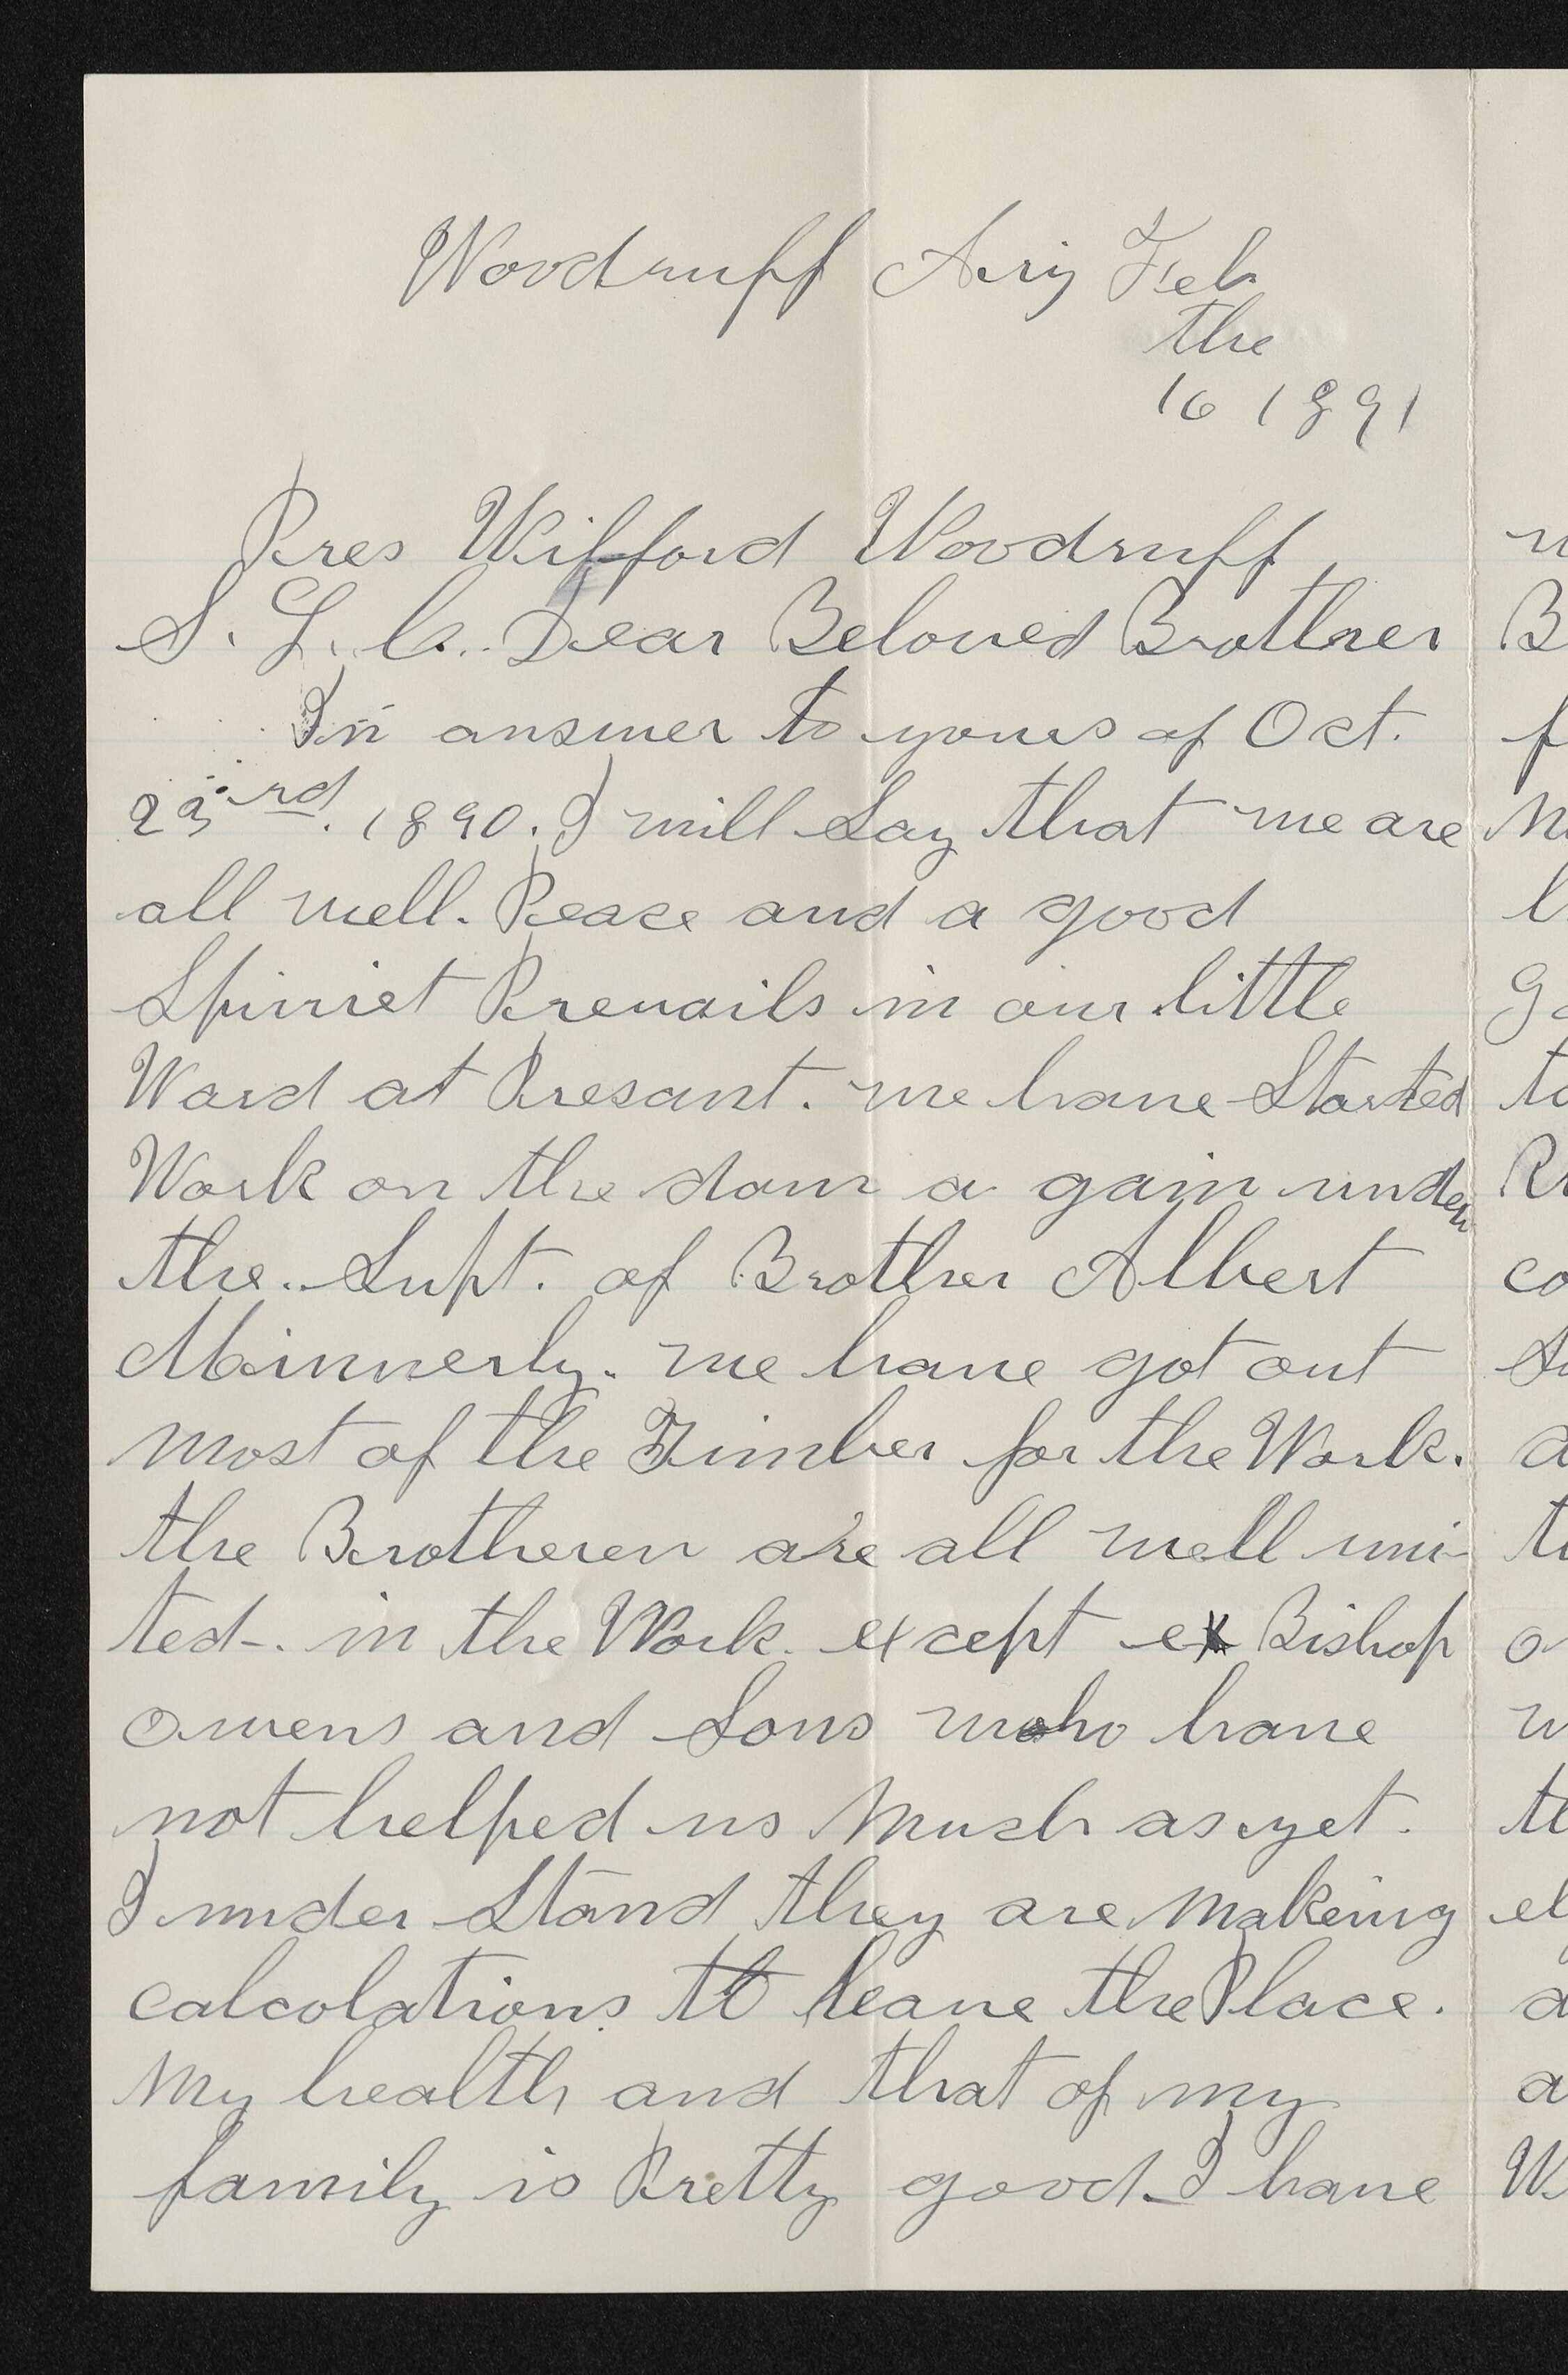 Woodruff Ariz Feb
the
16 1891
Pres Wilford Woodruff
S. L. C. Dear Beloved Brother
In answer to yours of Oct.
23rd. 1890. I will Say that we are
all well. Peace and a good
Spirriet Prevails in our little
Ward at Presant. we have Started
Work on the dam a gain under
the. Supt. of Brother Albert
Minnerly. we have got out
most of the Timber for the Work.
the Brotheren are all well uni-
ted-. in the Work. except ex Bishop
owens and Sons who have
not helped us Much as yet.
I under Stand they are Makeing
calcolations to leave the Place.
My health and that of my
family is Pretty good. I have